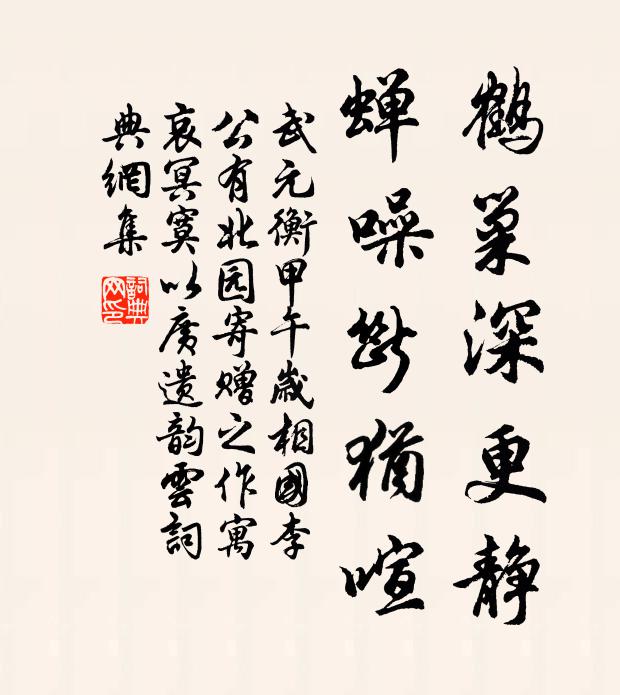 鹤巢深更静
蝉噪断犹喧
武元衡甲午岁相國李
公有北园寄赠之作寓
哀冥寞以广遗韵雲詞
典網集
詞典网印